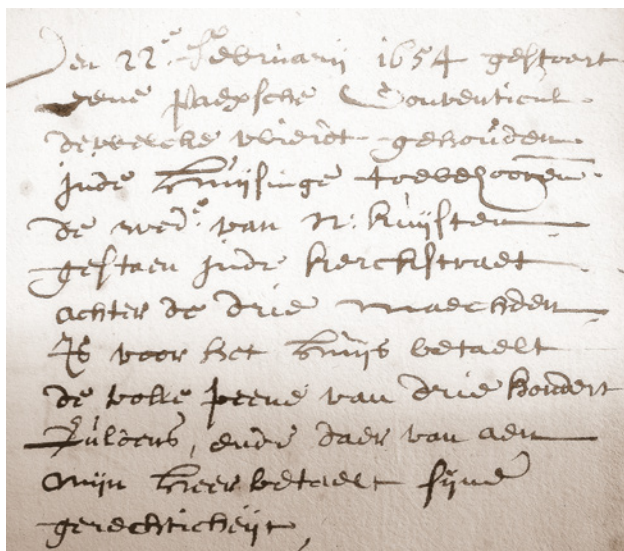 Den 22e Februarij 1654 gestoort
eene paepsche Conventicul
dewelcke wierdt gehouden
inde huijsinge toebehooren
de wede van N: kuijsten
gestaen inde kerckstraet
achter de drie maechden
Is voor het huijs betaelt
de volle peene van drie hondert
guldens, ende daer van aen
mijn heer betaelt sijne
gerechticheijt,